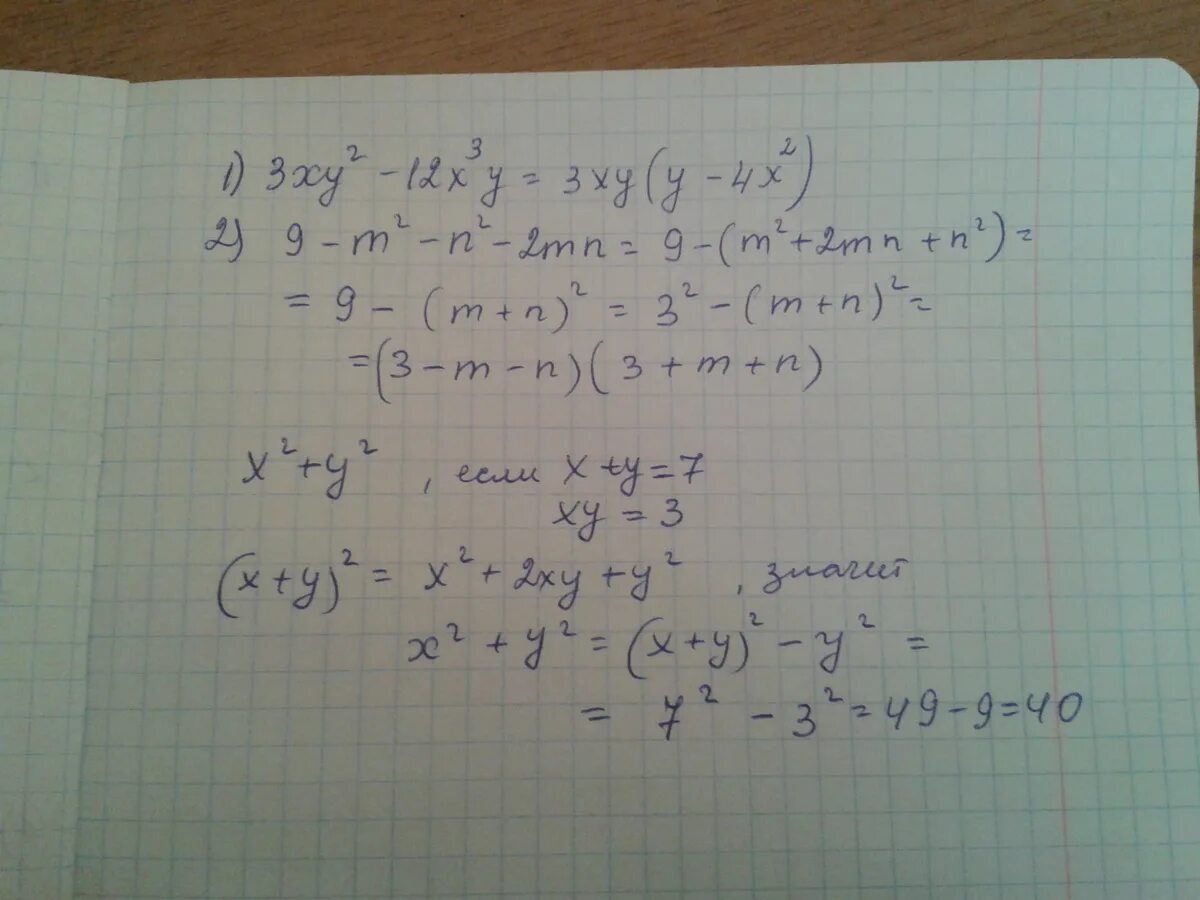 1) 3xy² - 12x³y = 3xy(y - 4x²)
2) 9 - m² - n² - 2mn = 9 - (m² + 2mn + n²) =
= 9 - (m + n)² = 3² - (m + n)² =
= (3 - m - n)(3 + m + n)
x² + y² , если x + y = 7
xy = 3
(x + y)² = x² + 2xy + y² , значит
x² + y² = (x + y)² - y² =
= 7² - 3² = 49 - 9 = 40